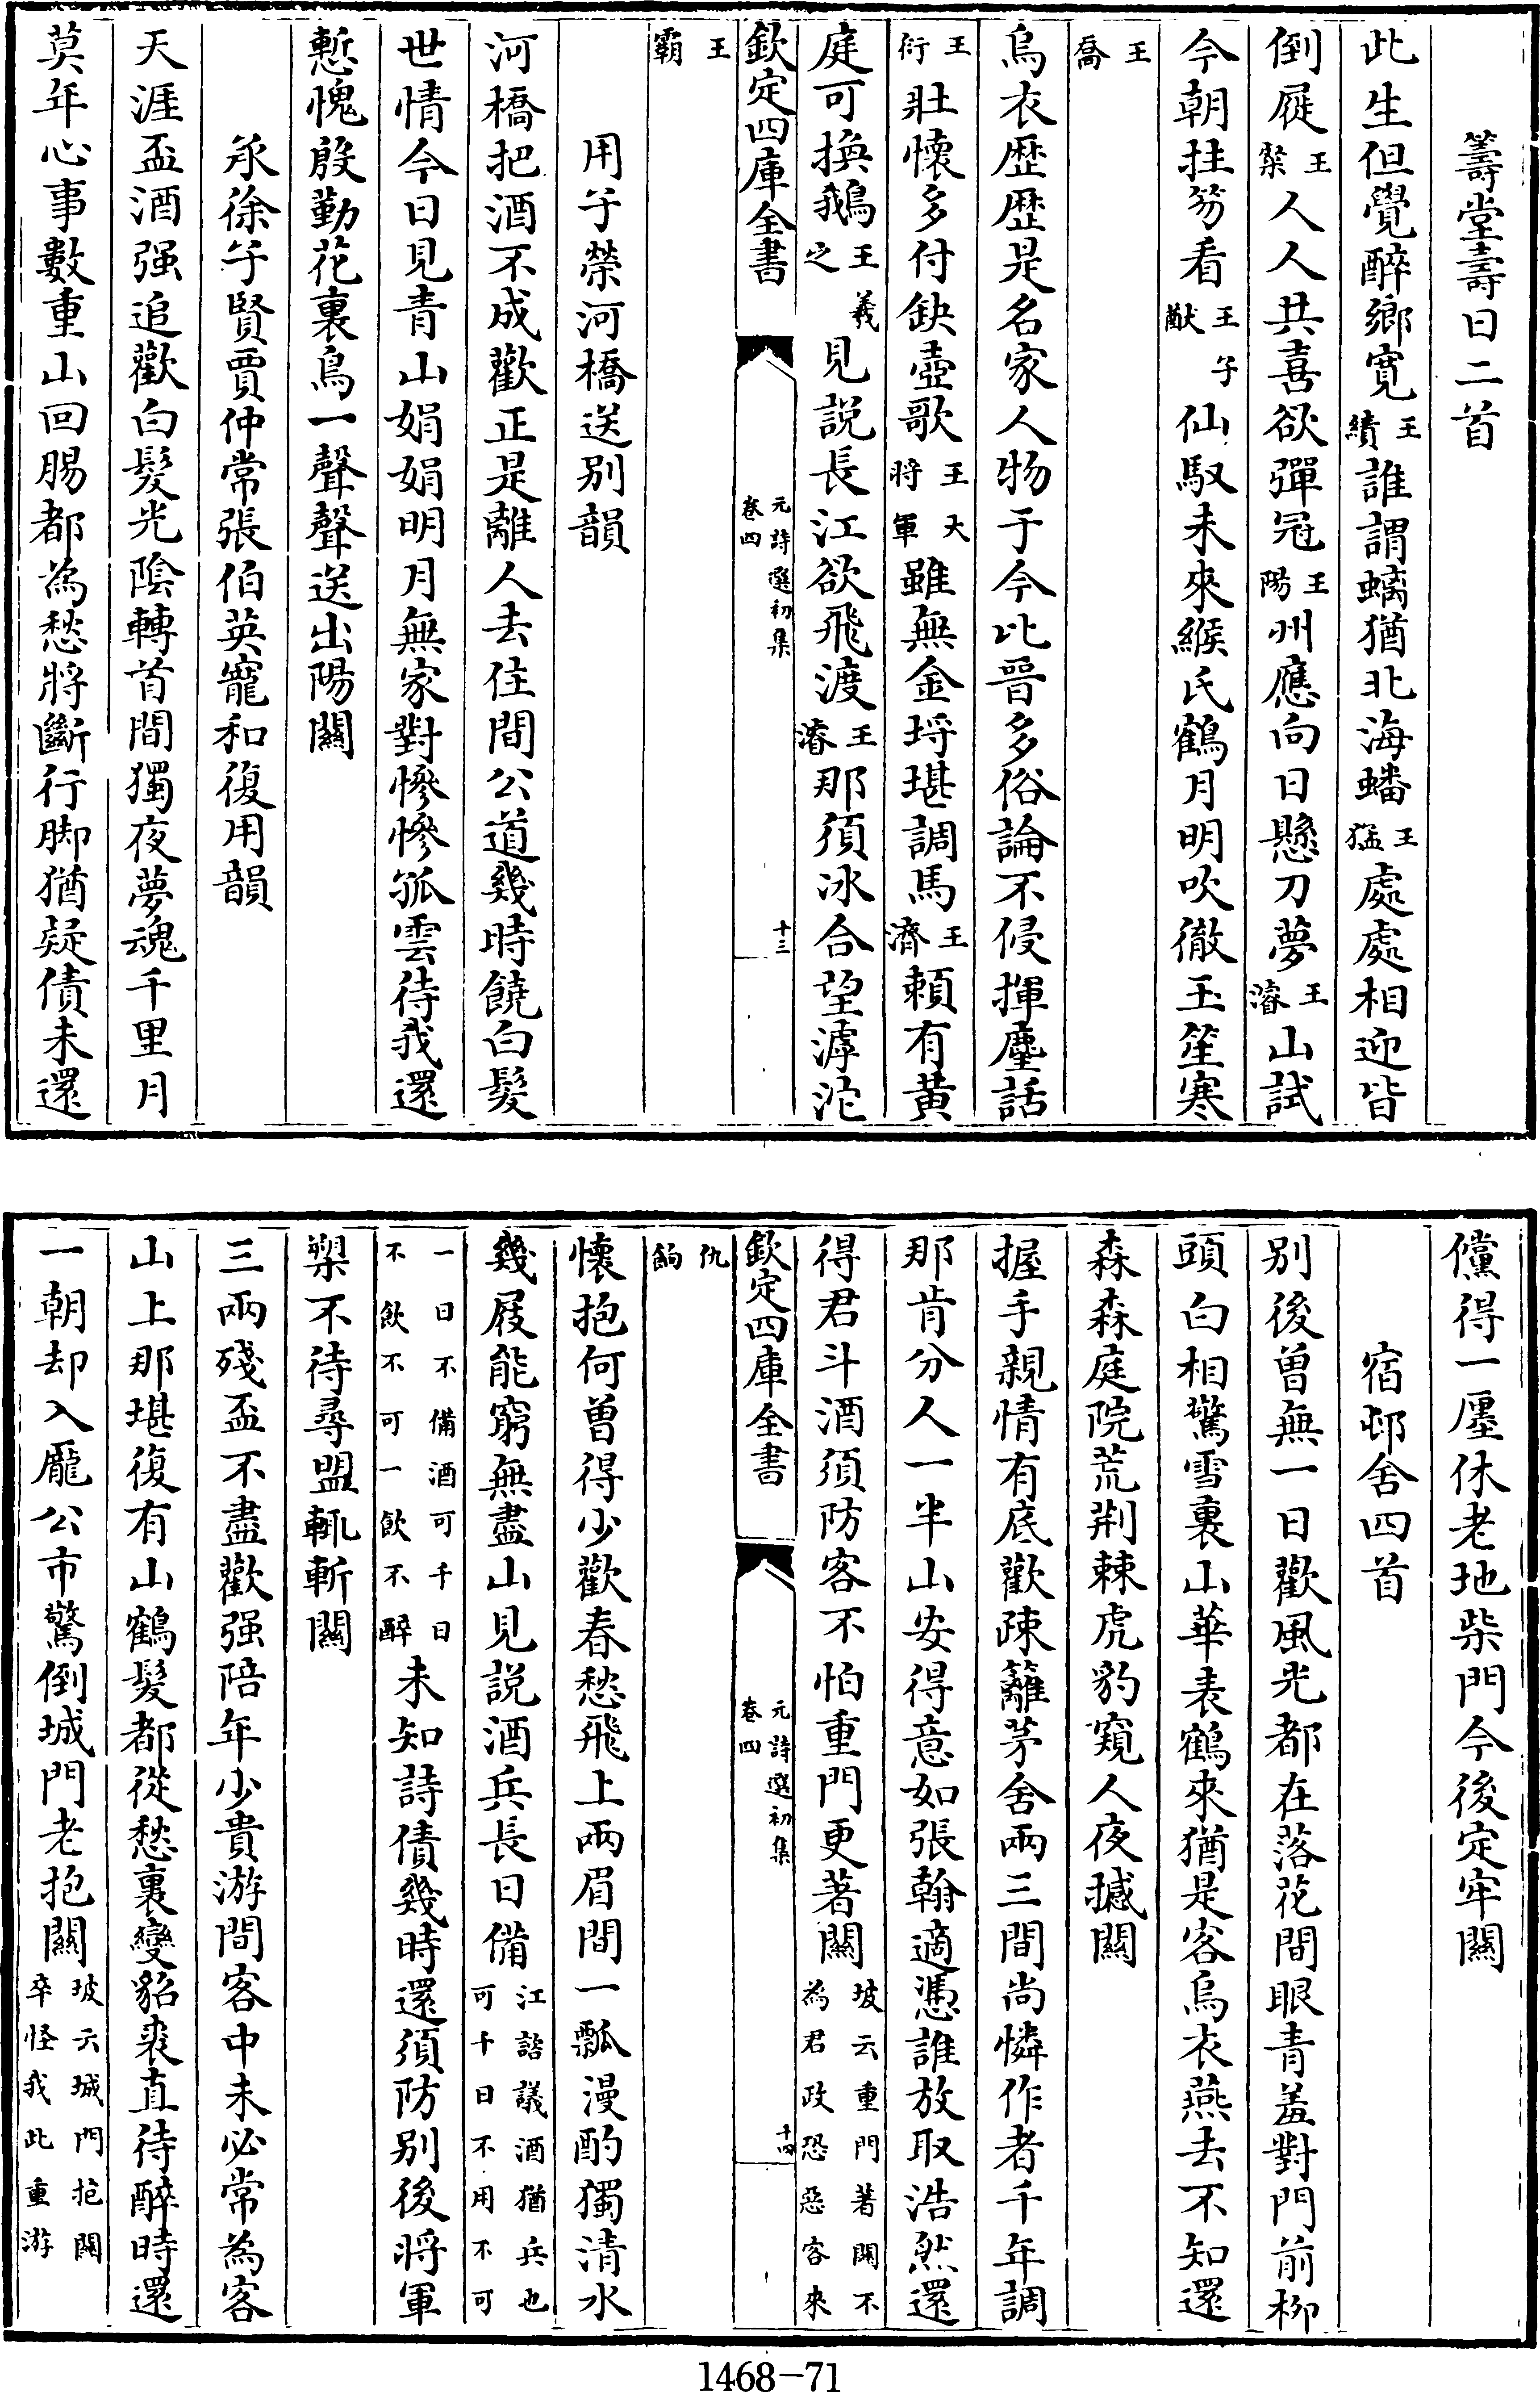 籌堂壽日二首
此生但覺醉鄉寬王績誰謂螭猶北海蟠王猛處處相迎皆
倒屣王粲人人共喜欲彈冠王陽州應向日懸刀夢王濬山試
今朝拄笏看王子猷仙馭未來緱氏鶴月明吹徹玉笙寒
王喬
烏衣歴歴是名家人物于今比晉多俗論不侵揮麈話
王衍壯懷多付鈌壺歌王大將軍雖無金埒堪調馬王濟頼有黃
庭可換鵝王羲之見説長江欲飛渡王濬那須冰合望滹沱
欽定四庫全書
元詩選初集
卷四
十三
王霸
用于榮河橋送别韻
河橋把酒不成歡正是離人去住間公道幾時饒白髮
世情今日見青山娟娟明月無家對慘慘孤雲待我還
慙愧殷勤花裏鳥一聲聲送出陽關
承徐子賢賈仲常張伯英寵和復用韻
天涯盃酒强追歡白髮光陰轉首間獨夜夢魂千里月
莫年心事數重山回腸都為愁將斷行脚猶疑債未還
儻得一廛休老地柴門今後定牢關
宿邨舍四首
别後曾無一日歡風光都在落花間眼青羞對門前栁
頭白相驚雪裏山華表鶴來猶是客烏衣燕去不知還
森森庭院荒荆棘虎豹窺人夜撼關
握手親情有底歡疎籬茅舍兩三間尚憐作者千年調
那肯分人一半山安得意如張翰適憑誰放取浩然還
得君斗酒須防客不怕重門更著關坡云重門著關不為君政恐惡客來
欽定四庫全書
元詩選初集
卷四
十四
仇餉
懷抱何曾得少歡春愁飛上兩眉間一瓢漫酌獨清水
幾屐能窮無盡山見説酒兵長日備江諮議酒猶兵也可千日不用不可
一日不備酒可千日不飲不可一飲不醉未知詩債幾時還須防别後將軍
槊不待尋盟輒斬關
三兩殘盃不盡歡强陪年少貴游間客中未必常為客
山上那堪復有山鶴髮都從愁裏變貂裘直待醉時還
一朝却入龐公市驚倒城門老抱關坡云城門抱關卒怪我此重游
1468-71